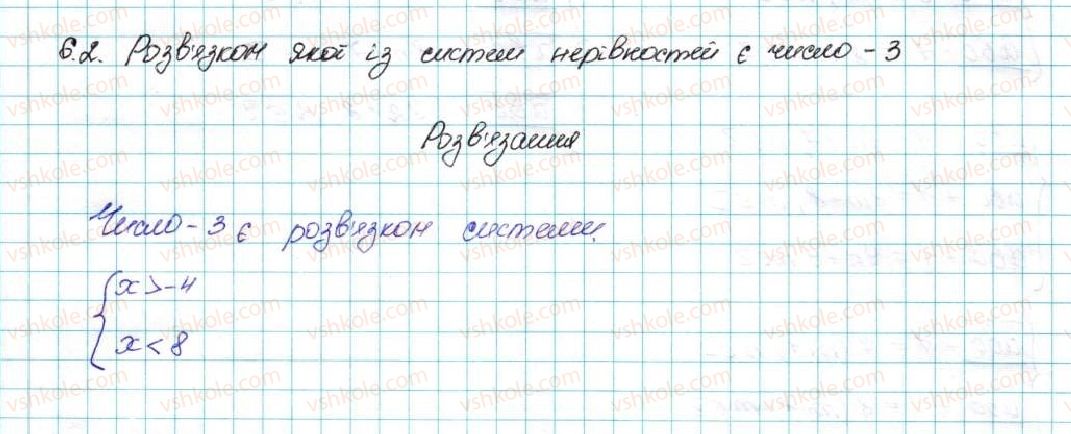 6.2. Розв'язком якої із систем нерівностей є число -3
Розв'язання
Число -3 є розв'язком системи.
{ x > -4
x < 8